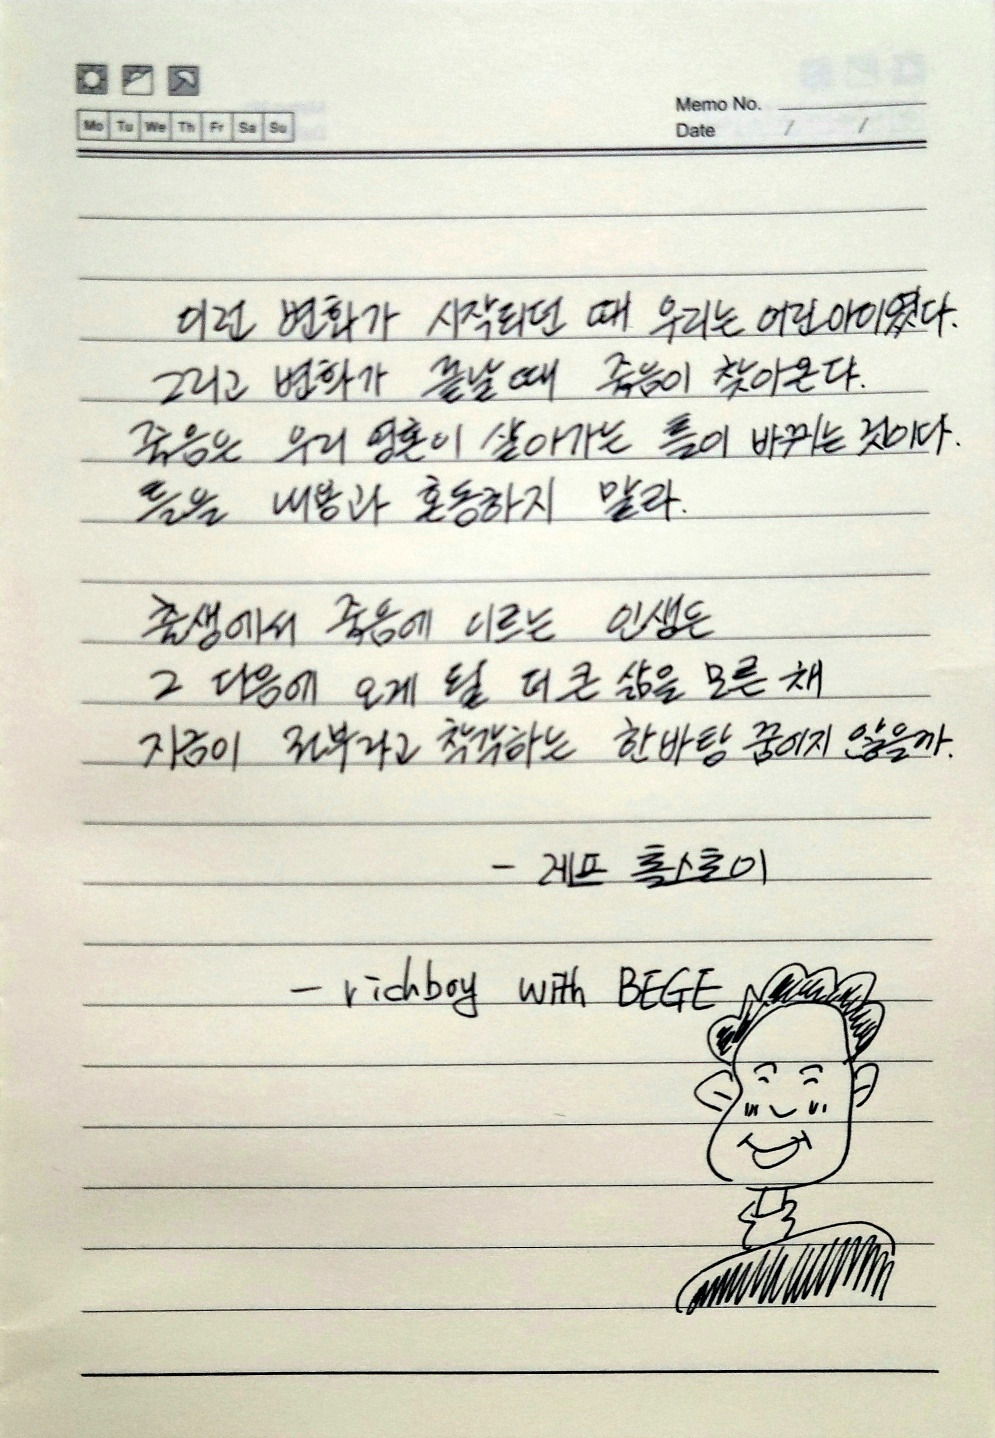 Memo No.
Mo Tu We Th Fr Sa Su
Date / /
이런 변화가 시작되던 때 우리는 어린아이였다.
그리고 변화가 끝날 때 죽음이 찾아온다.
죽음은 우리 영혼이 살아가는 틀이 바뀌는 것이다.
틀을 내용과 혼동하지 말라.
출생에서 죽음에 이르는 인생은
그 다음에 오게 될 더 큰 삶을 모른 채
지금이 전부라고 착각하는 한바탕 꿈이지 않을까.
- 레프 톨스토이
- richboy with BEGE